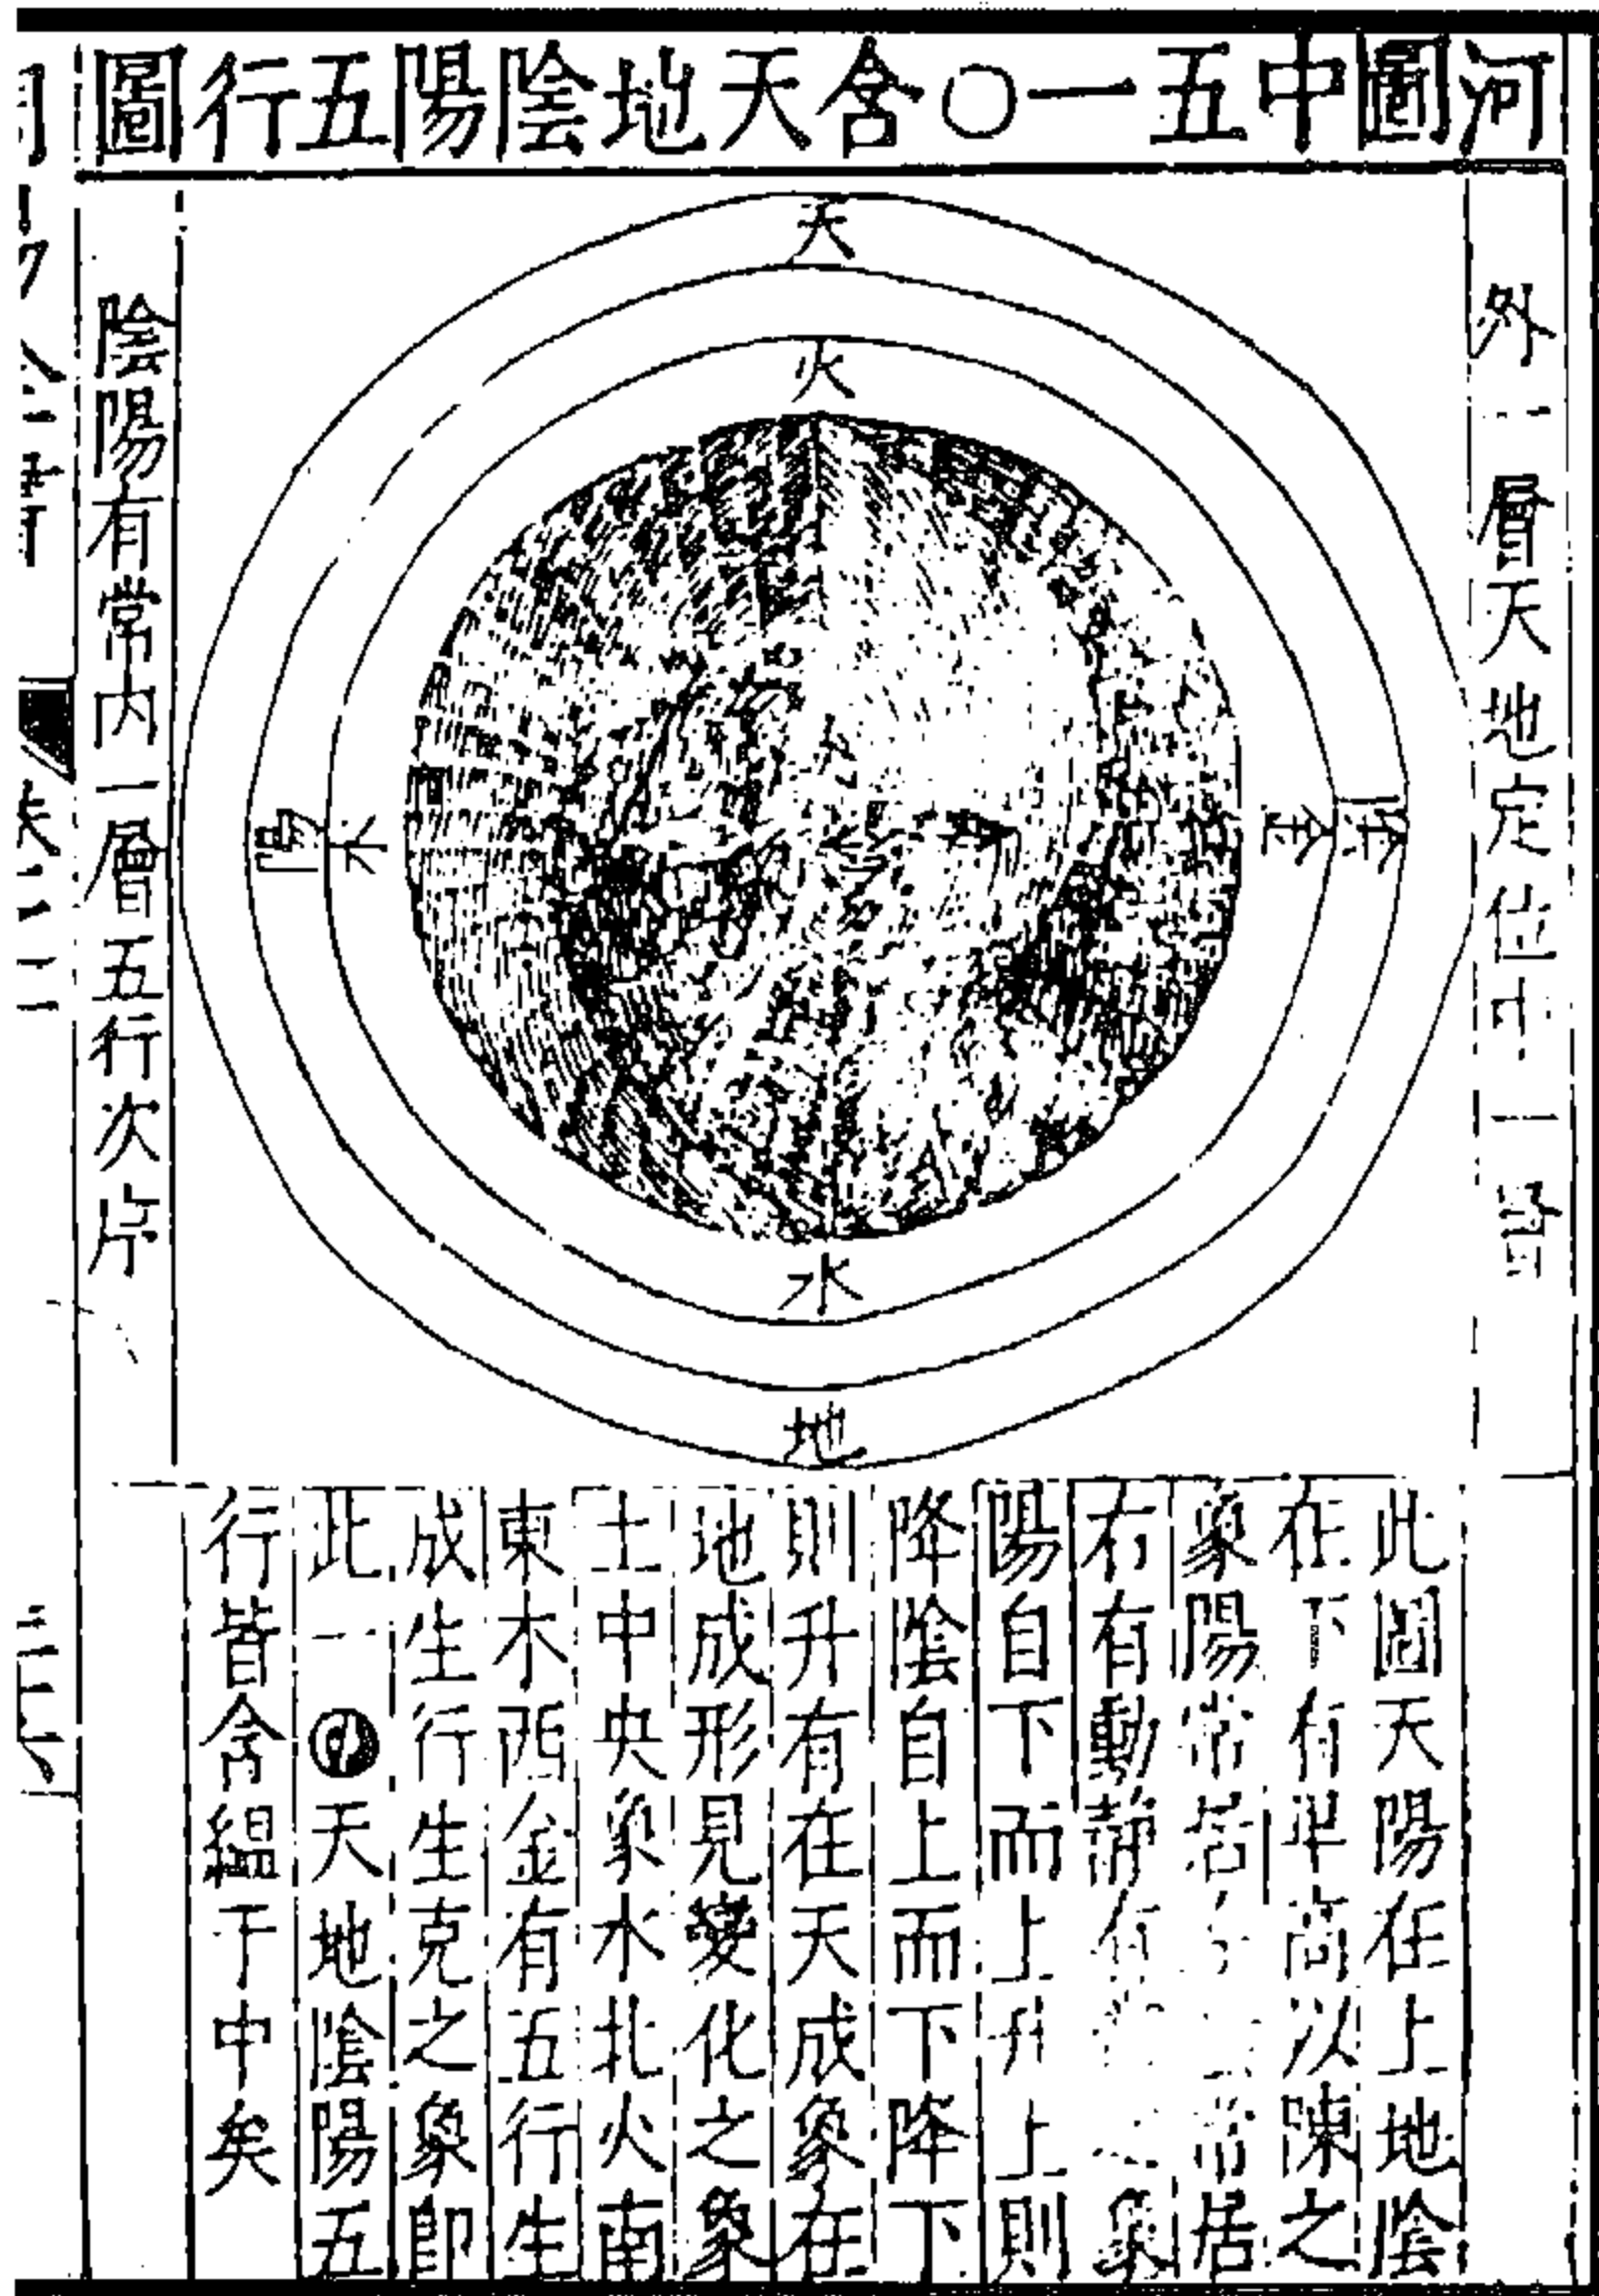 河圖中五一〇含天地陰陽五行圖
外一層天地定位中一層
天
火
陽
木
金
陰
水
地
陰陽有常内一層五行次序
此圖天陽在上地陰
在下有卑高以陳之
象陽常居居
右有動靜有象
陽自下而上升上則
降陰自上而下降下
則升有在天成象在
地成形見變化之象
土中央象水北火南
東木西金有五行生
成生行生克之象即
此一天地陰陽五
行皆含緼于中矣